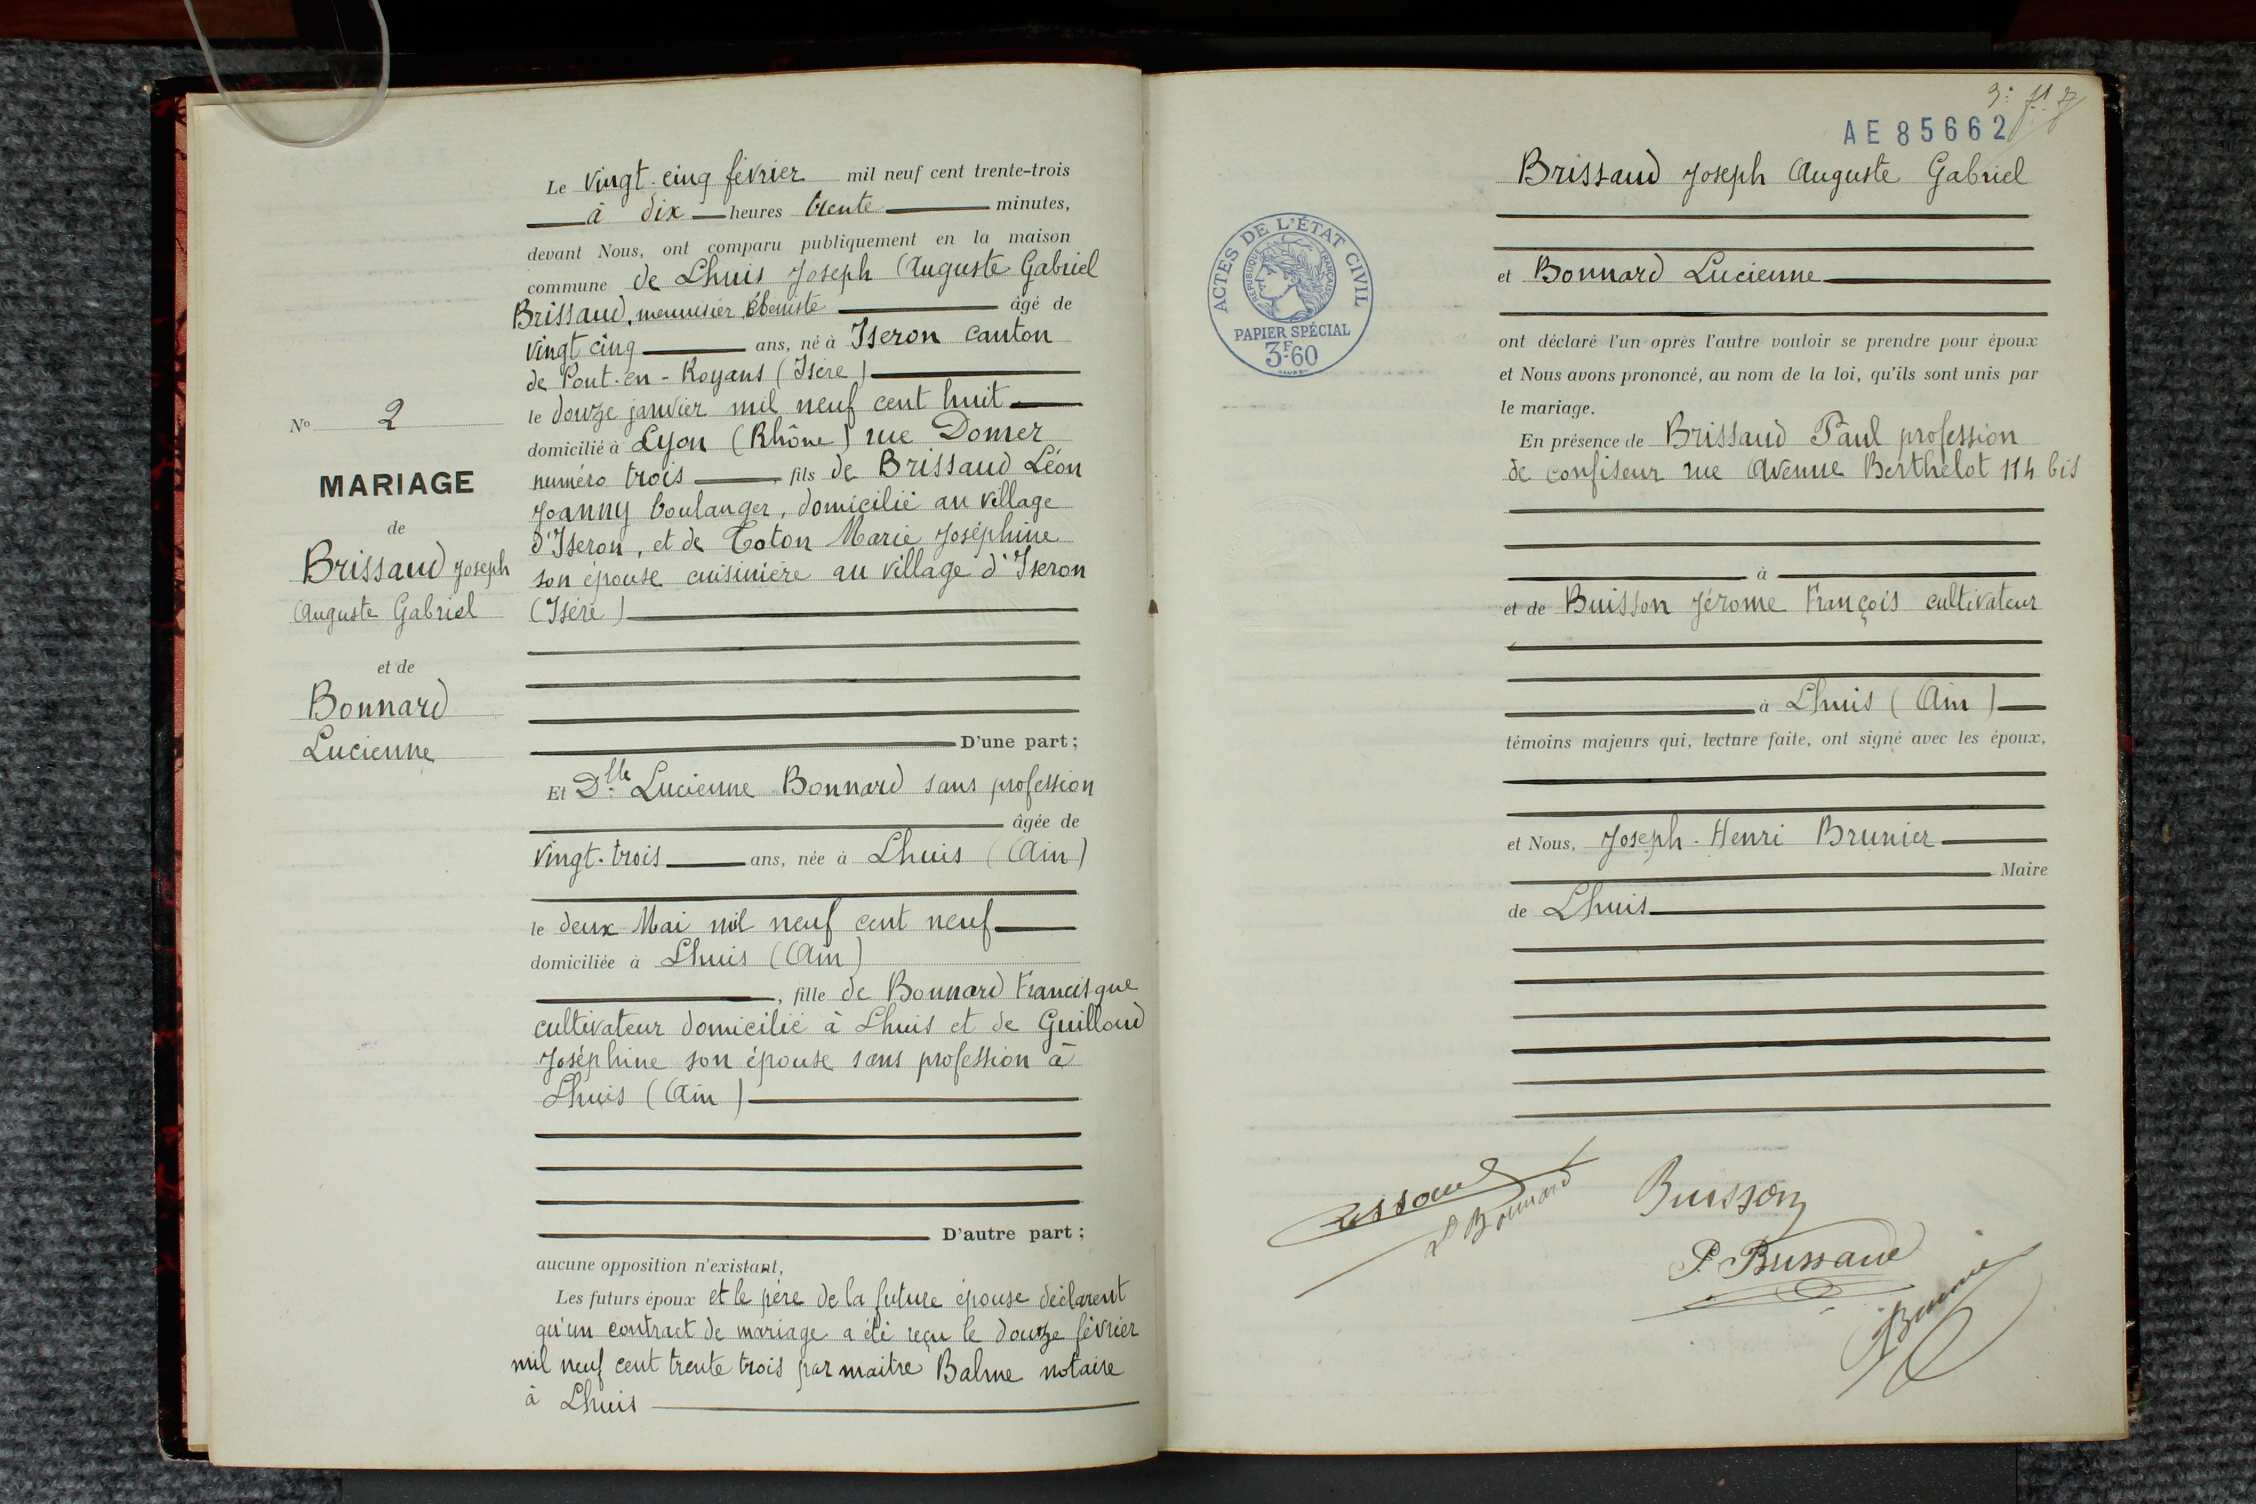 Le vingt-cinq février mil neuf cent trente-trois
à dix heures trente minutes,
devant Nous, ont comparu publiquement en la maison
commune de Lhuis Joseph Auguste Gabriel
Brissaud, menuisier ébeniste âgé de
vingt cinq ans, né à Iseron canton
de Pont-en-Royans (Isère)
le douze janvier mil neuf cent huit
domicilié à Lyon (Rhône) rue Domer
numéro trois, fils de Brissaud Léon
Joanny boulanger, domicilié au village
d'Iseron, et de Toton Marie Joséphine
son épouse cuisinière au village d'Iseron
(Isère)
D'une part;
Et Dlle Lucienne Bonnard sans profession
âgée de
vingt-trois ans, née à Lhuis (Ain)
le deux Mai mil neuf cent neuf
domiciliée à Lhuis (Ain)
, fille de Bonnard Francisque
cultivateur domicilié à Lhuis et de Guilloud
Joséphine son épouse sans profession à
Lhuis (Ain)
D'autre part;
aucune opposition n'existant,
Les futurs époux et le père de la future épouse déclarent
qu'un contract de mariage a été reçu le douze février
mil neuf cent trente trois par maitre Balme notaire
à Lhuis
No 2
MARIAGE
de
Brissaud Joseph
Auguste Gabriel
et de
Bonnard
Lucienne
AE 85662
Brissaud Joseph Auguste Gabriel
et Bonnard Lucienne
ACTES DE L'ÉTAT CIVIL
RÉPUBLIQUE FRANÇAISE
PAPIER SPÉCIAL
3F.60
ont déclaré l'un après l'autre vouloir se prendre pour époux
et Nous avons prononcé, au nom de la loi, qu'ils sont unis par
le mariage.
En présence de Brissaud Paul profession
de confiseur rue Avenue Berthelot 114 bis
à
et de Buisson Jérome François cultivateur
à Lhuis (Ain)
témoins majeurs qui, lecture faite, ont signé avec les époux,
et Nous, Joseph-Henri Brunier
Maire
de Lhuis
L Bonnard
Buisson
P. Brissaud